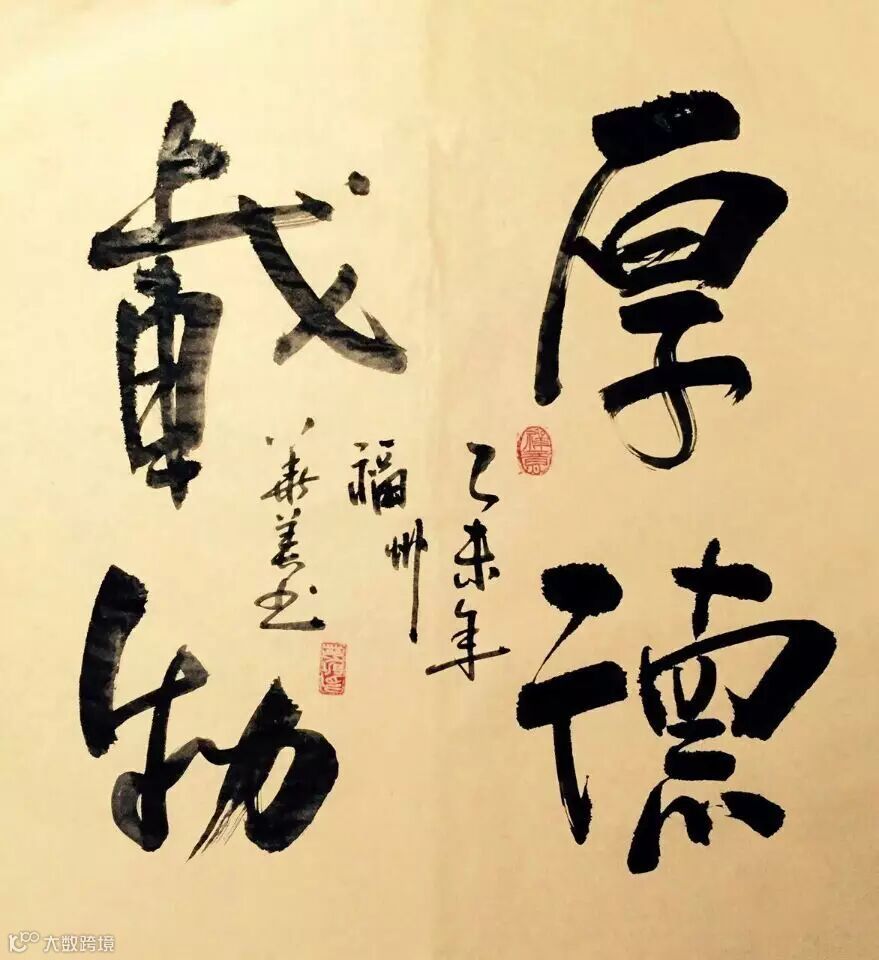 厚德
載物
乙未年
福州
美书
大数跨境